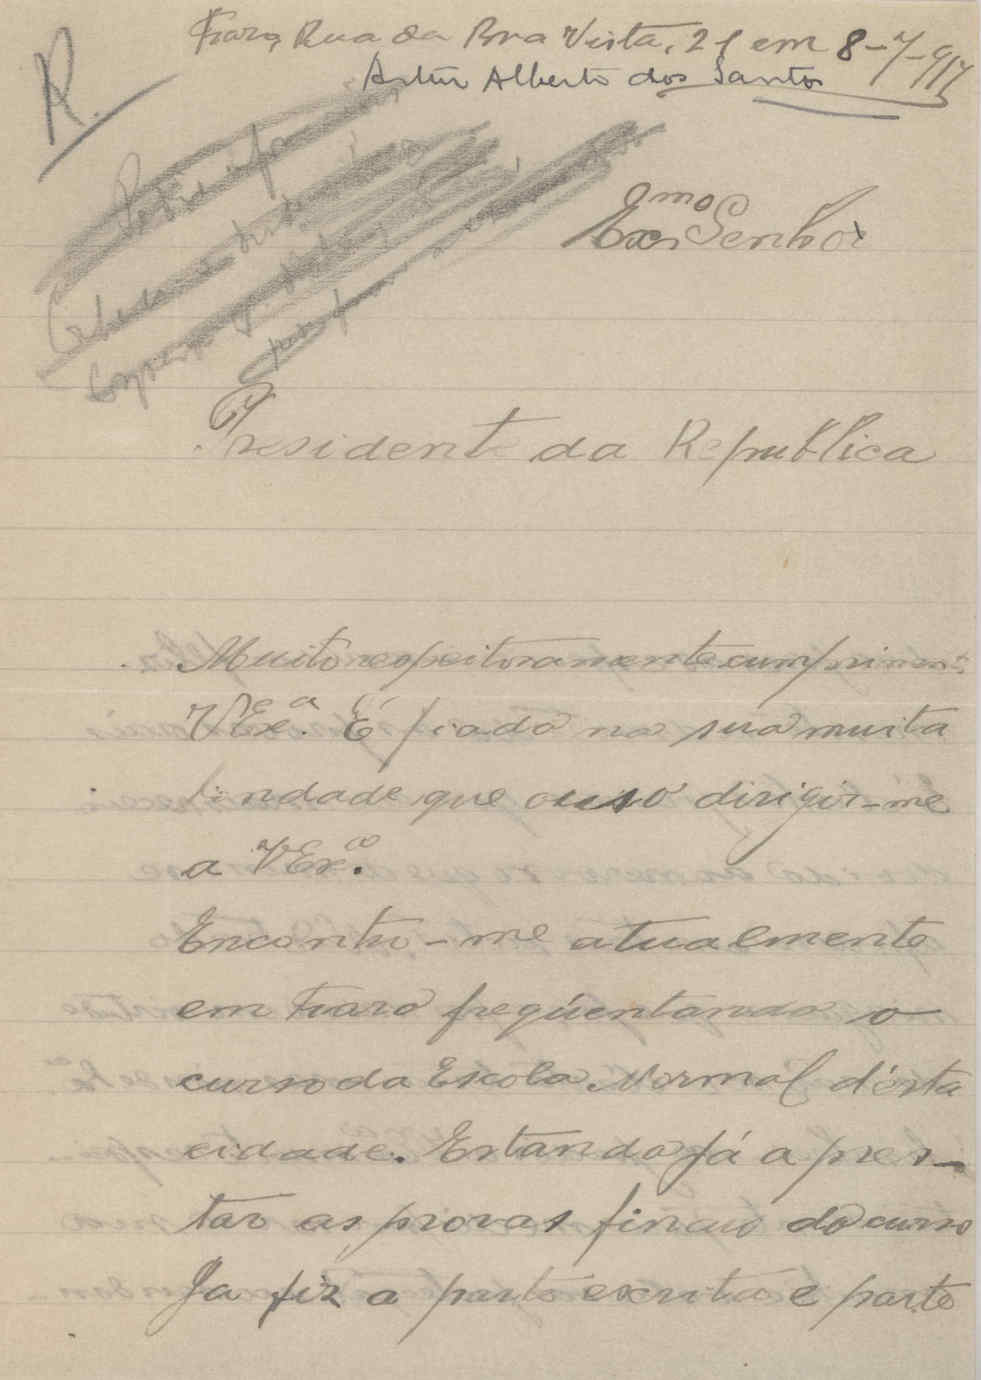 Faro, Rua da Boa Vista, 21 em 8-7-917
Artur Alberto dos Santos
R.
Exmo Senhor
Presidente da Republica
Muito respeitosamente cumprimento
V Exa. É fiado na sua muita
bondade que ouso dirigir-me
a V Exa.
Encontro-me atualmente
em Faro freqüentando o
curso da Escola Normal d'esta
cidade. Estando já a pres-
tar as provas finais do curso
Ja fiz a parte escrita e parte